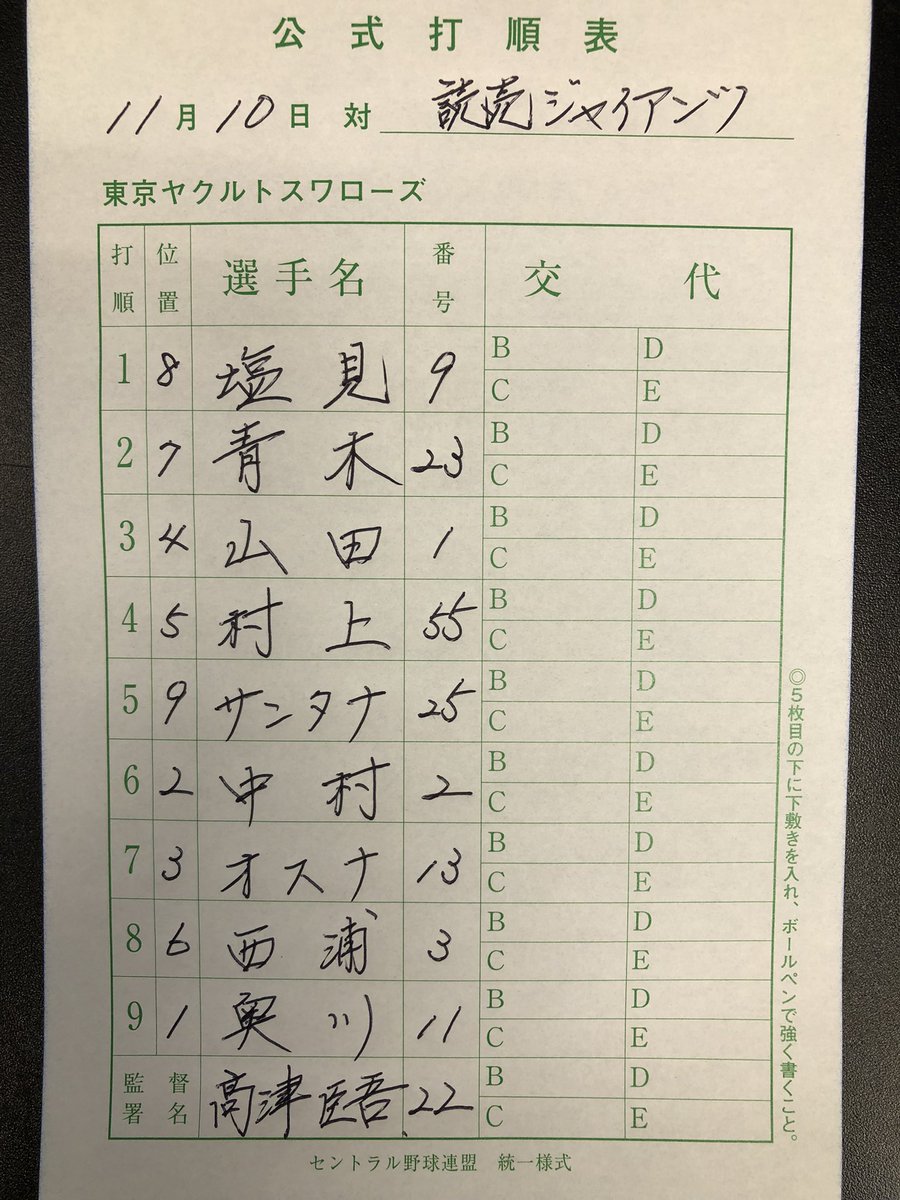 公式打順表
11月10日 対 読売ジャイアンツ
東京ヤクルトスワローズ
打順 位置 選手名 番号 交代
1 8 塩見 9 B D C E
2 7 青木 23 B D C E
3 4 山田 1 B D C E
4 5 村上 55 B D C E
5 9 サンタナ 25 B D C E
6 2 中村 2 B D C E
7 3 オスナ 13 B D C E
8 6 西浦 3 B D C E
9 1 奥川 11 B D C E
監督署名 高津臣吾 22 B D C E
セントラル野球連盟 統一様式
◎5枚目の下に下敷きを入れ、ボールペンで強く書くこと。